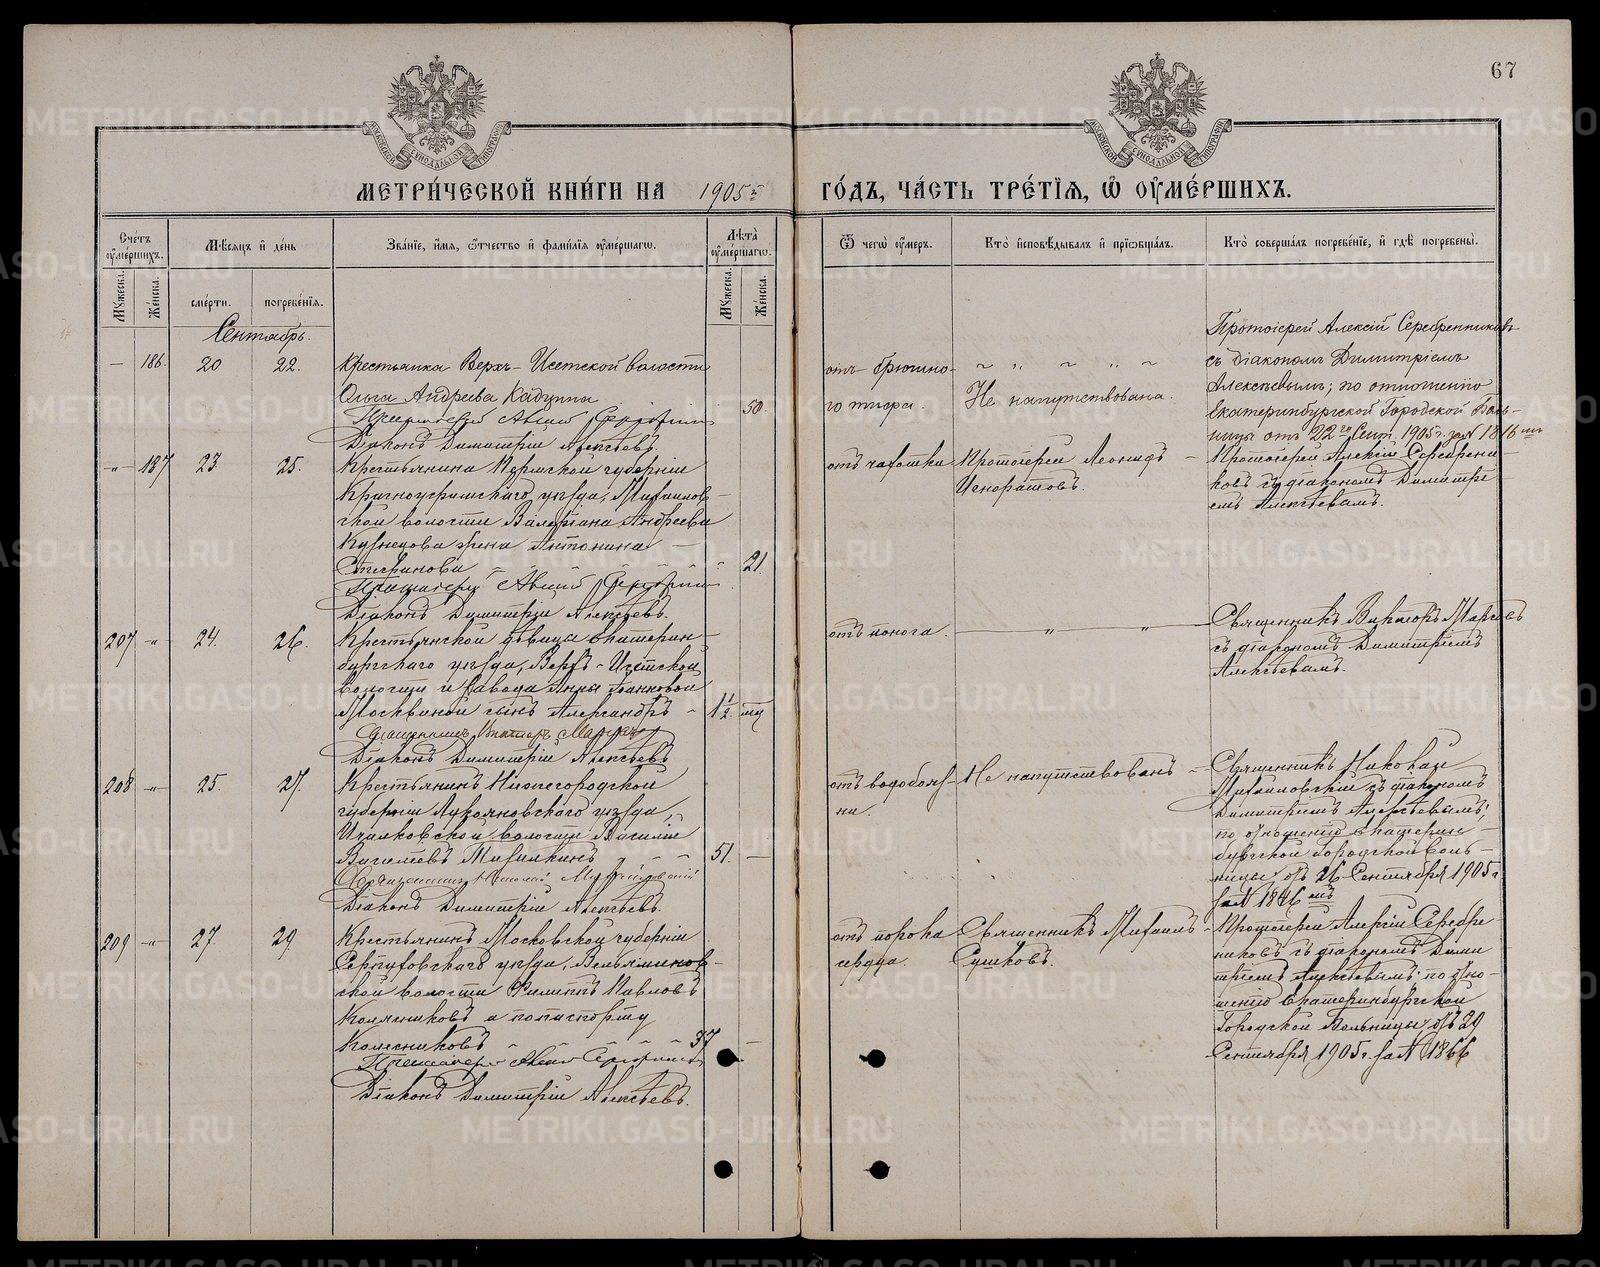 67
МЕТРИ́ЧЕСКОЙ КНИ́ГИ НА 1905 ГО́ДЪ, ЧА́СТЬ ТРЕ́ТІЯ, Ѿ ОУ҆МЕ́РШИХЪ.
Сче́тъ оу҆ме́ршихъ.
Мѣ́сяцъ и҆ де́нь
Зва́нїе, и҆́мя, ѻ҆́тчество и҆ фамі́лїя оу҆ме́ршагѡ.
Лѣ́та оу҆ме́ршагѡ.
Ѿ чегѡ̀ оу҆́меръ.
Кто̀ и҆сповѣ́дывалъ и҆ прїѡбща́лъ.
Кто̀ соверша́лъ погребе́нїе, и҆ гдѣ̀ погребены̀.
Мꙋ́жеска.
Же́нска.
сме́рти.
погребе́нїя.
Мꙋ́жеска.
Же́нска.
Сентябрь.
— 186. 20 22.
Крестьянка Верхъ-Исетской волости
Ольга Андреева
50.
Діаконъ Димитрій Алексѣевъ.
отъ брюшно-
го тифа.
Не напутствована.
Протоіерей Алексій Серебренниковъ
съ діакономъ Димитріемъ
Алексѣевымъ; по отношенію
Екатеринбургской Городской Боль-
ницы отъ 22го Сент. 1905 г. за № 1816
-„- 187 23. 25.
Крестьянина Пермской губерніи
Красноуфимскаго уѣзда, Михайлов-
ской волости Валеріана Андреева
Кузнецова жена Антонина
Стефанова
21.
Діаконъ Димитрій Алексѣевъ.
отъ чахотки
Протоіерей Леонидъ
Игноратовъ.
Протоіерей Алексій Серебрени-
ковъ съ діакономъ Димитрі-
емъ Алексѣевымъ.
207 -„- 24. 26.
Крестьянской дѣвицы Екатерин-
бургскаго уѣзда, Верхъ-Исетской
волости и завода Анны Іоанновой
Москвиной сынъ Александръ
1½ мѣ
Священникъ Викторъ
Діаконъ Димитрій Алексѣевъ
отъ поноса.
„ „
Священникъ Викторъ
съ діакономъ Димитріемъ
Алексѣевымъ.
208 -„- 25. 27.
Крестьянинъ Нижегородской
губерніи Лукояновскаго уѣзда,
волости Василій
Васильевъ
51. —
Священникъ Николай
Діаконъ Димитрій Алексѣевъ.
отъ водобояз-
ни.
Не напутствованъ
Священникъ Николай
съ діакономъ
Димитріемъ Алексѣевымъ;
по отношенію Екатерин-
бургской Городской Боль-
ницы отъ 26 Сентября 1905 г.
за № 1846
209 -„- 27. 29
Крестьянинъ Московской губерніи
Серпуховскаго уѣзда, Вельяминов-
ской волости Филиппъ Павловъ
а по паспорту
Колесниковъ
37 —
Діаконъ Димитрій Алексѣевъ.
отъ порока
сердца.
Священникъ Михаилъ
Сушковъ.
Протоіерей Алексій Серебре-
никовъ съ діакономъ Дими-
тріемъ Алексѣевымъ; по отно-
шенію Екатеринбургской
Городской Больницы отъ 29
Сентября 1905 г. за № 1866
METRIKI.GASO-URAL.RU